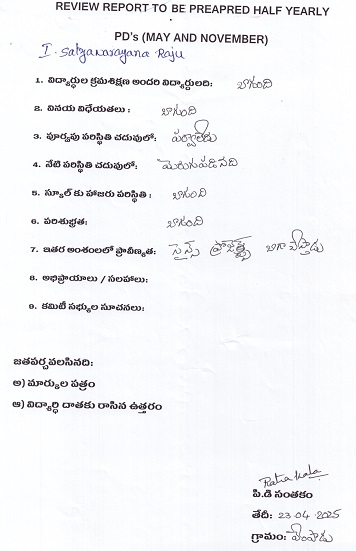 REVIEW REPORT TO BE PREAPRED HALF YEARLY
PD's (MAY AND NOVEMBER)
I. Satyanarayana Raju
1. విద్యార్ధుల క్రమశిక్షణ అందరి విద్యార్దులది: బాగుంది
2. వినయ విధేయతలు : బాగుంది
3. పూర్వపు పరిస్థితి చదువులో: పర్వాలేదు
4. నేటి పరిస్థితి చదువులో: మెరుగుపడినది
5. స్కూల్ కు హాజరు పరిస్థితి : బాగుంది
6. పరిశుభ్రత: బాగుంది
7. ఇతర అంశంలలో ప్రావీణ్యత: సైన్స్ ప్రాజెక్ట్స్ బాగా చేస్తాడు
8. అభిప్రాయాలు / సలహాలు:
9. కమిటీ సభ్యుల సూచనలు:
జతపర్చవలసినది:
అ) మార్కుల పత్రం
ఆ) విద్యార్ధి దాతకు రాసిన ఉత్తరం
పి.డి సంతకం
తేదీ: 23-04-2025
గ్రామం: